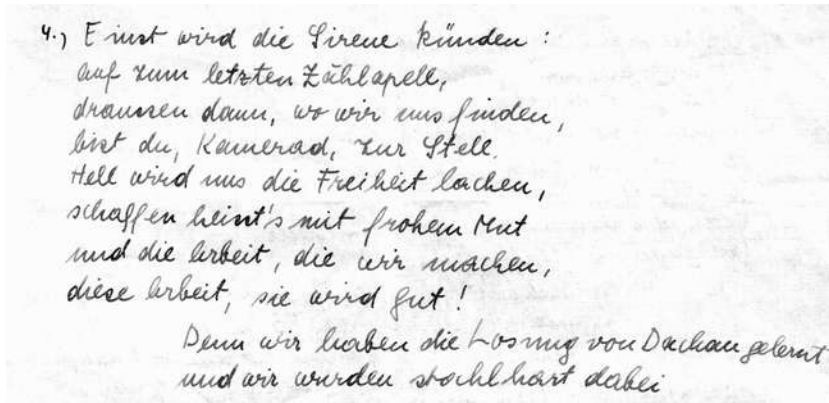 4., Einst wird die Sirene künden :
auf zum letzten Zählapell,
draussen dann, wo wir uns finden,
bist du, Kamerad, zur Stell.
Hell wird uns die Freiheit lachen,
schaffen heisst's mit frohem Mut
und die Arbeit, die wir machen,
diese Arbeit, sie wird gut !
Denn wir haben die Losung von Dachau gelernt
und wir wurden stahlhart dabei